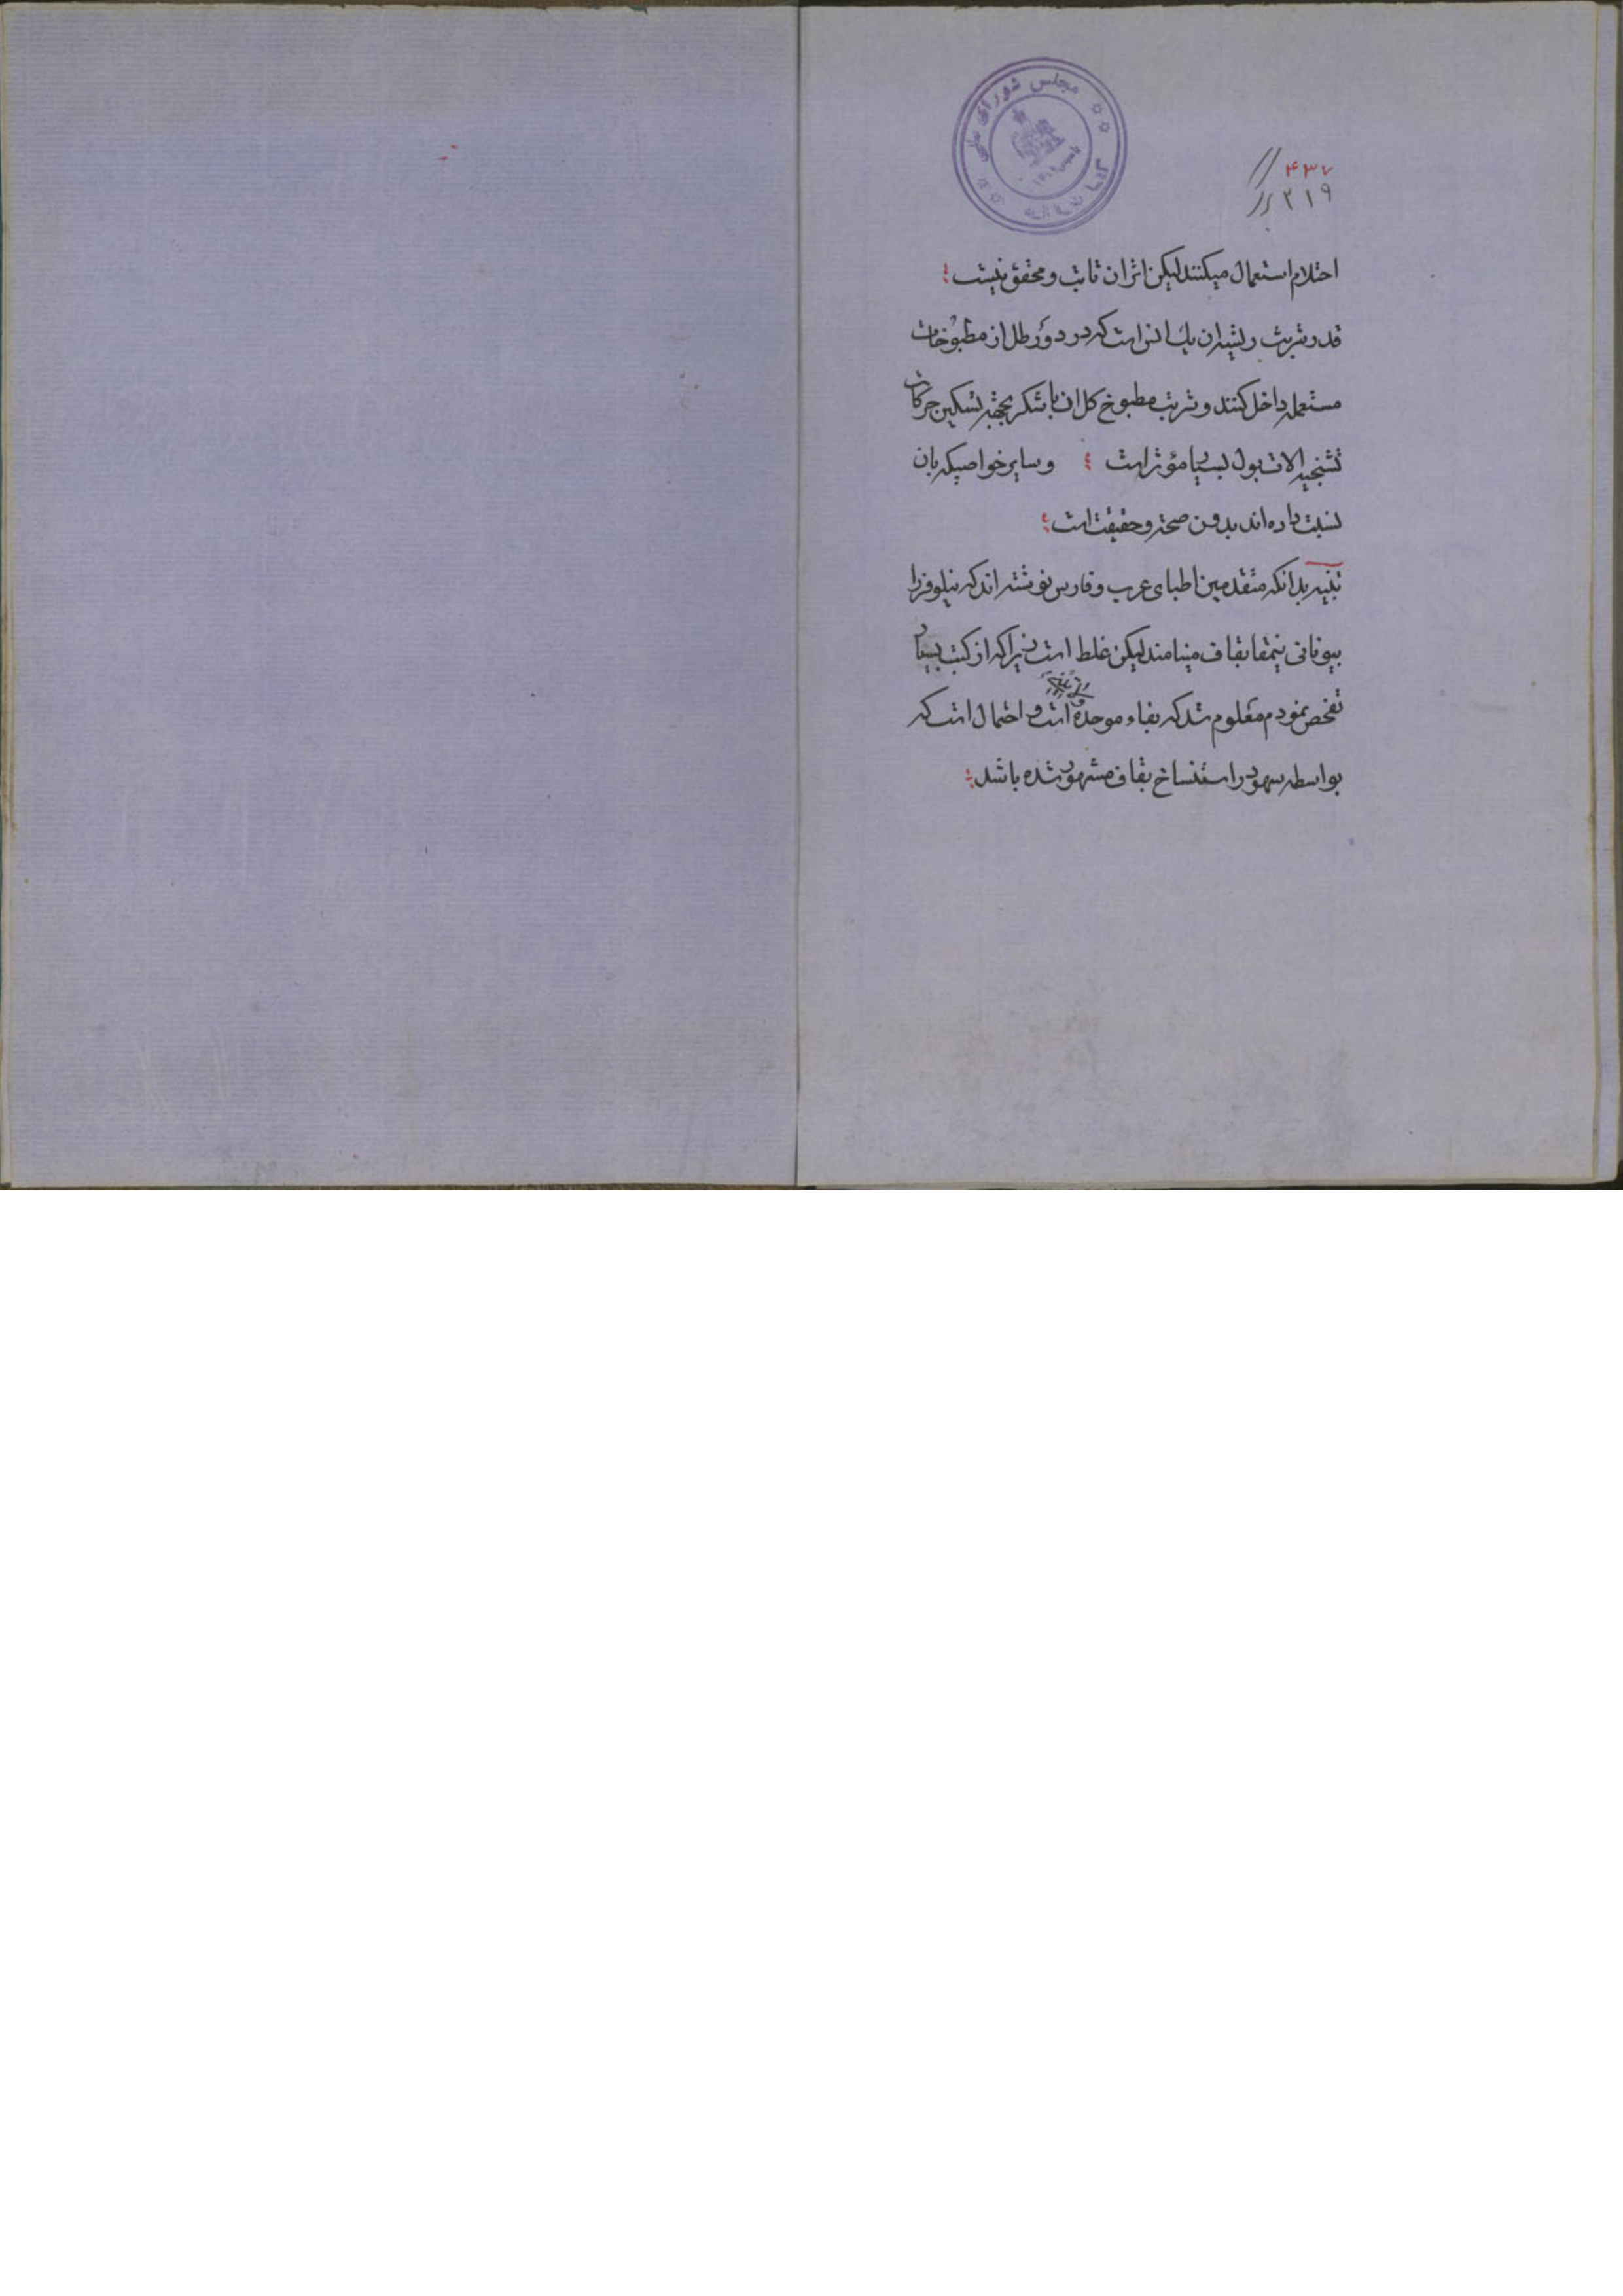 مجلس شورای ملی
۴۳۷
۲۱۹
احتلام استعمال میکنند لیکن اثر ان ثابت و محقق نیست
قدر شربت ریشه ان یک انس است که در دو رطل از مطبوخات
مستعمله داخل کنند و شربت مطبوخ کل ان با شکر بجهة تسکین حرکات
تشنجیه الات بول بسیار مؤثر است وسایر خواصیکه بان
نسبت داده اند بدون صحة و حقیقت است
تنبیه بدانکه متقدمین اطبای عرب و فارس نوشته اند که نیلوفر را
بیونانی نیمقا بقاف مینامند لیکن غلط است زیرا که از کتب بسیار
تفحص نمودم معلوم شد که بفاء موحده است و احتمال است که
بواسطه سهو در استنساخ بقاف مشهور شده باشد